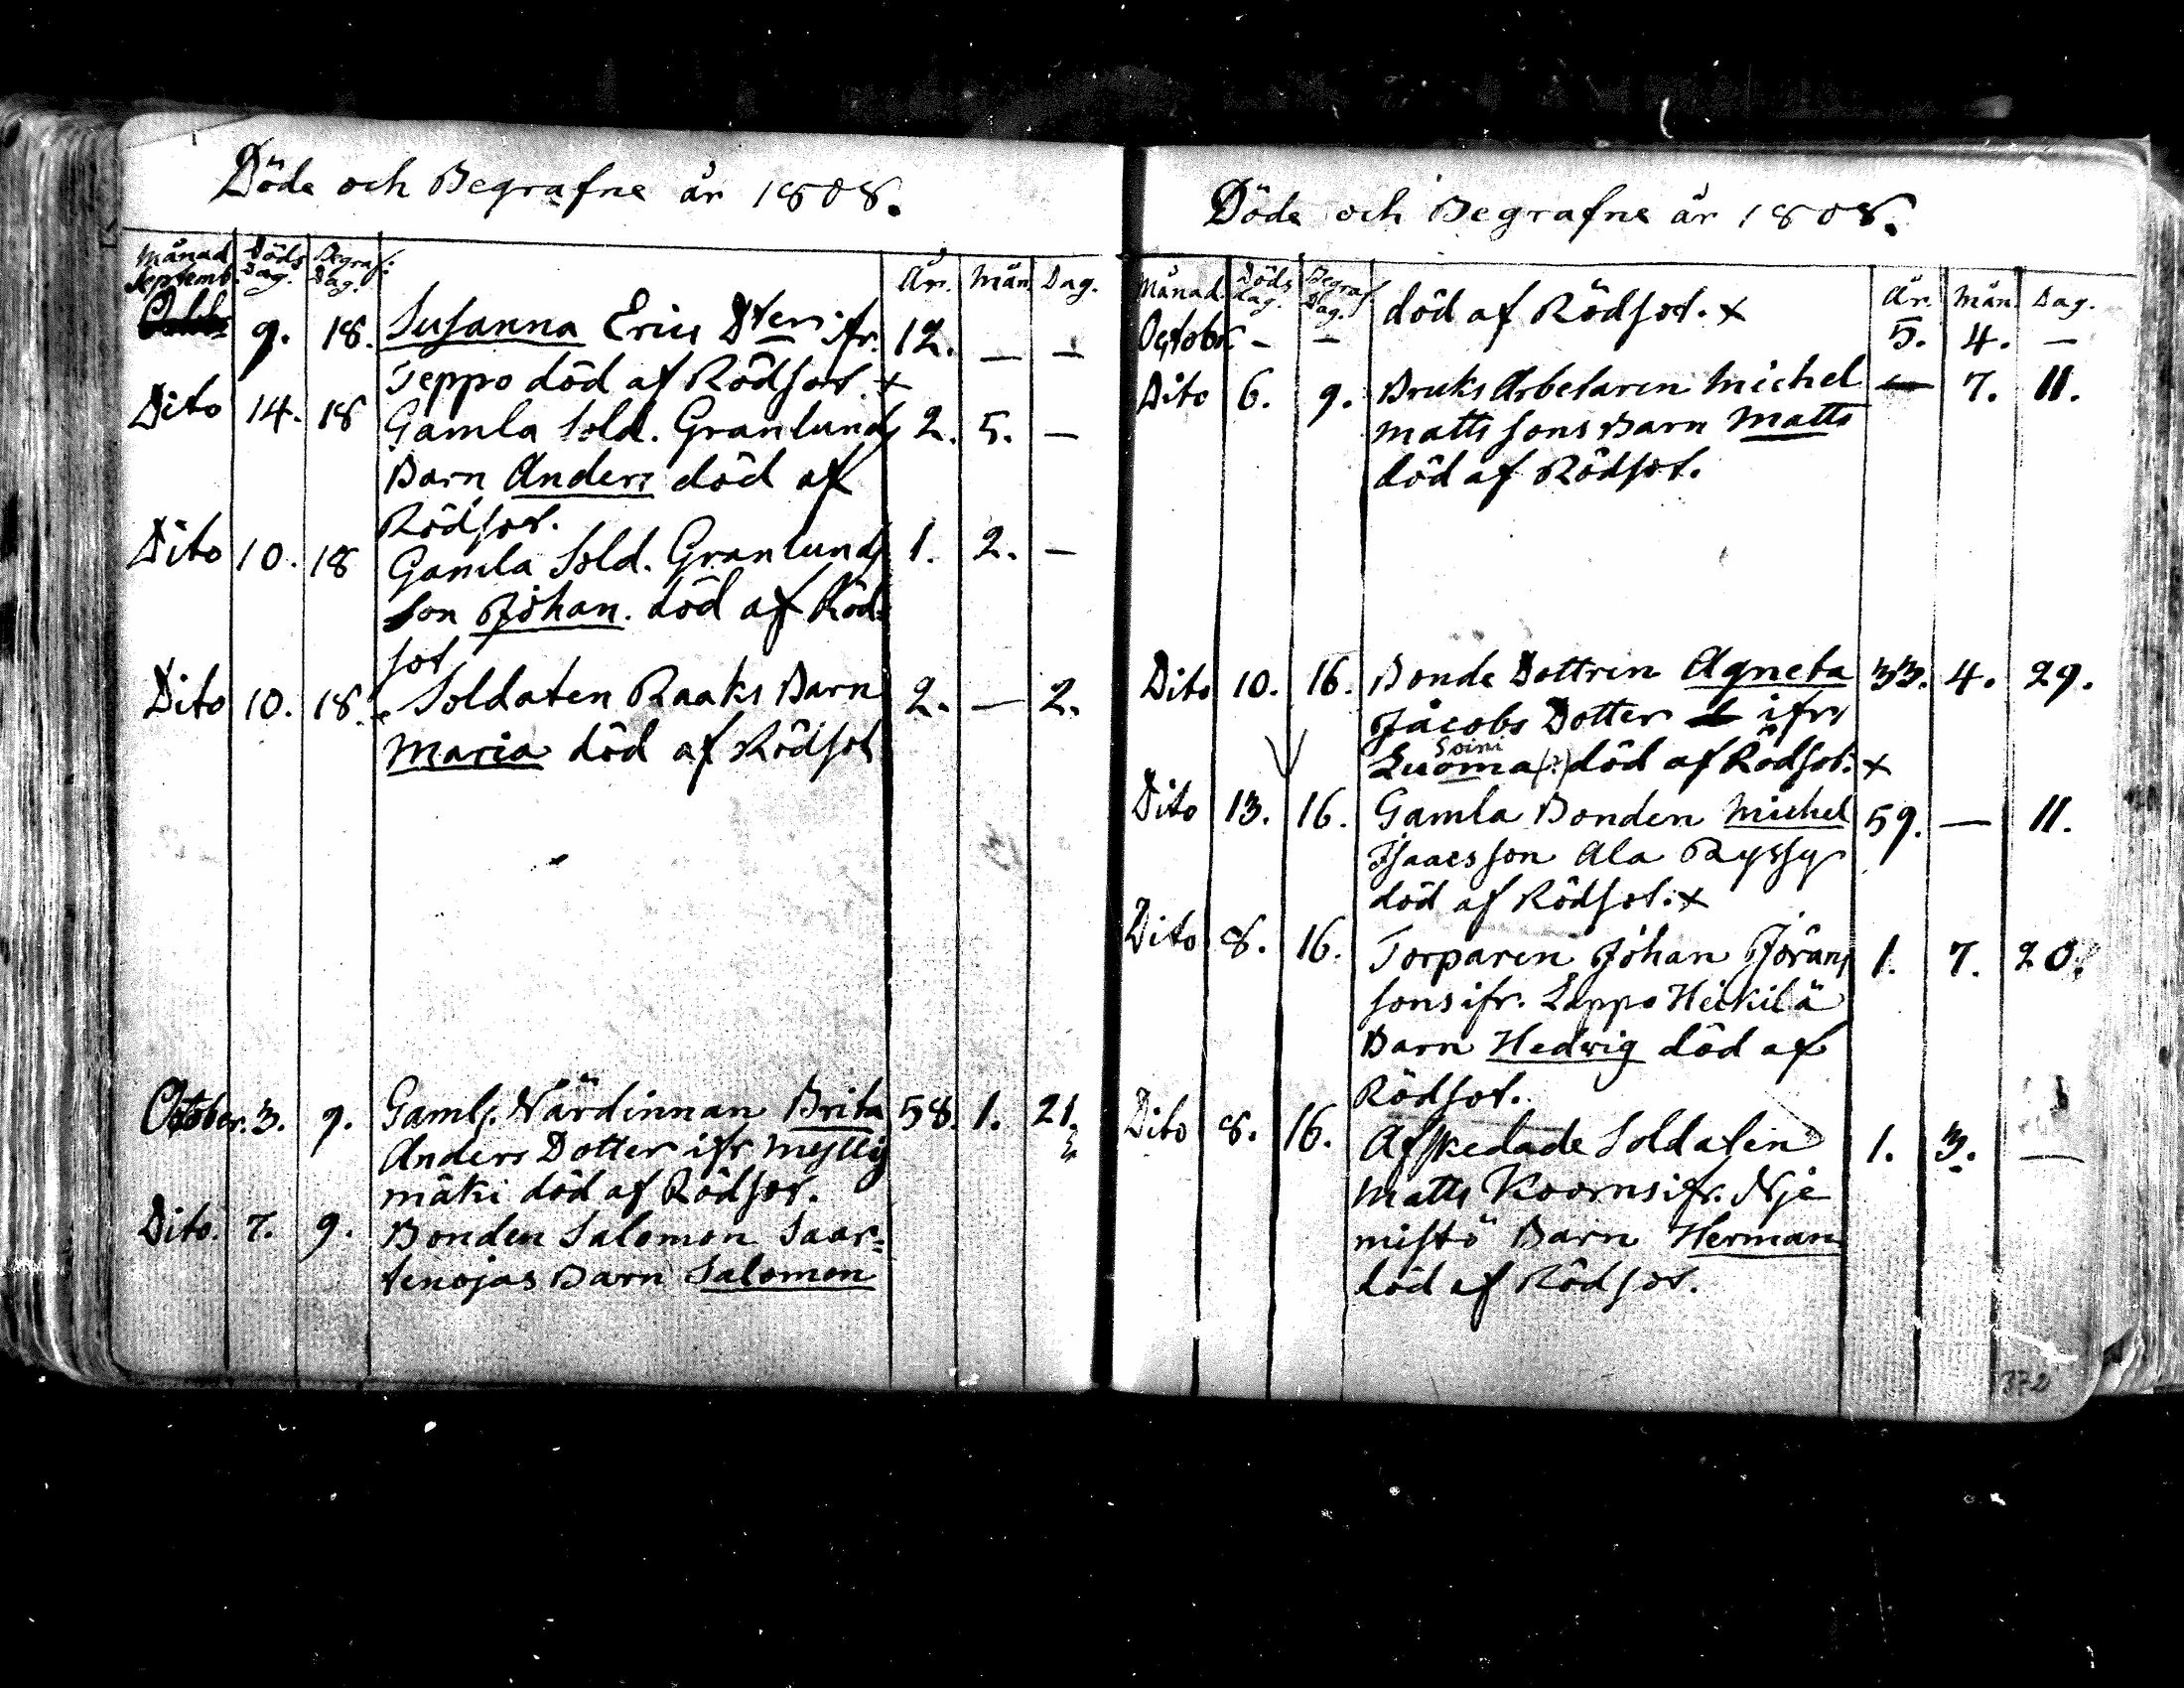 Döde och Begrafne år 1808.
Månad Döds Dag. Begraf: Dag. År. Mån. Dag.
Septemb.
9. 18. Susanna Erics Dter ifr. 12. — —
Teppo död af Rödsot. x
Dito 14. 18 Gamla Sold. Granlunds 2. 5. —
Barn Anders död af
Rödsot.
Dito 10. 18 Gamla Sold. Granlunds 1. 2. —
Son Johan. död af Röd-
sot
Dito 10. 18. Soldaten Raaks Barn 2. — 2.
Maria död af Rödsot
October. 3. 9. Gaml. Värdinnan Brita 58. 1. 21.
Anders Dotter ifr Mylly
mäki död af Rödsot.
Dito. 7. 9. Bonden Salomon Saar-
tenojas Barn Salomon
Döde och Begrafne år 1808.
Månad. Döds dag. Begraf Dag. År. Mån. Dag.
död af Rödsot. x
October — — 5. 4. —
Dito 6. 9. Bruks Arbetaren Michel — 7. 11.
Matts sons Barn Matts
död af Rödsot.
Dito 10. 16. Bonde Dottren Agneta 33. 4. 29.
Jacobs Dotter ifr
Soini
Luoma (:) död af Rödsot. x
Dito 13. 16. Gamla Bonden Michel 59. — 11.
Isaacsson Ala Ryssy
död af Rödsot. x
Dito 8. 16. Torparen Johan Jörans 1. 7. 20.
sons ifr. Lappo Heikilä
Barn Hedvig död af
Rödsot.
Dito 8. 16. Afskedade Soldaten 1. 3. —
Matts Koorns ifr. Nje
mistö Barn Herman
död af Rödsot.
372